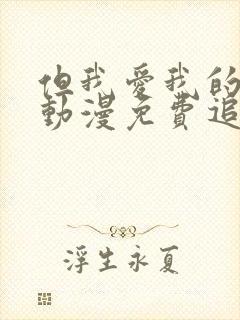 但我愛我的
動漫免費追
浮生永夏